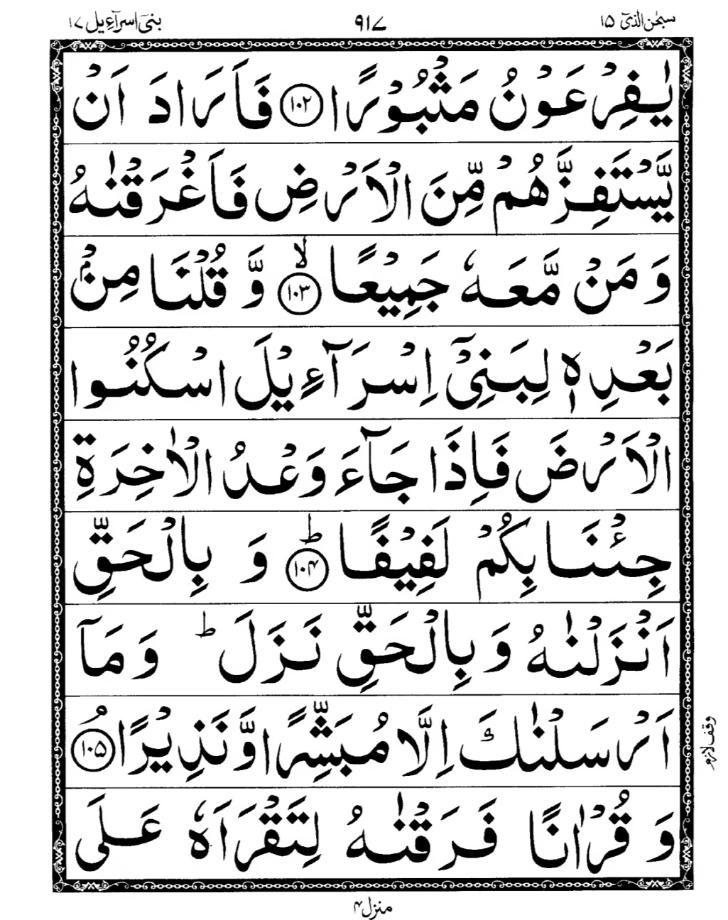 سبحٰن الذیٓ ۱۵
۹۱۷
بنیٓ اسرآءیل ۱۷
یٰفِرْعَوْنُ مَثْبُوْرًا ﴿۱۰۲﴾ فَاَرَادَ اَنْ
یَّسْتَفِزَّهُمْ مِّنَ الْاَرْضِ فَاَغْرَقْنٰهُ
وَ مَنْ مَّعَهٗ جَمِیْعًا ﴿۱۰۳﴾ۙ وَّ قُلْنَا مِنْۢ
بَعْدِهٖ لِبَنِیْۤ اِسْرَآءِیْلَ اسْكُنُوا
الْاَرْضَ فَاِذَا جَآءَ وَعْدُ الْاٰخِرَةِ
جِئْنَا بِكُمْ لَفِیْفًا ﴿۱۰۴﴾ؕ وَ بِالْحَقِّ
اَنْزَلْنٰهُ وَ بِالْحَقِّ نَزَلَ ؕ وَ مَاۤ
اَرْسَلْنٰكَ اِلَّا مُبَشِّرًا وَّ نَذِیْرًا ﴿۱۰۵﴾ۘ
وقف لازم
وَ قُرْاٰنًا فَرَقْنٰهُ لِتَقْرَاَهٗ عَلَی
منزل ۴